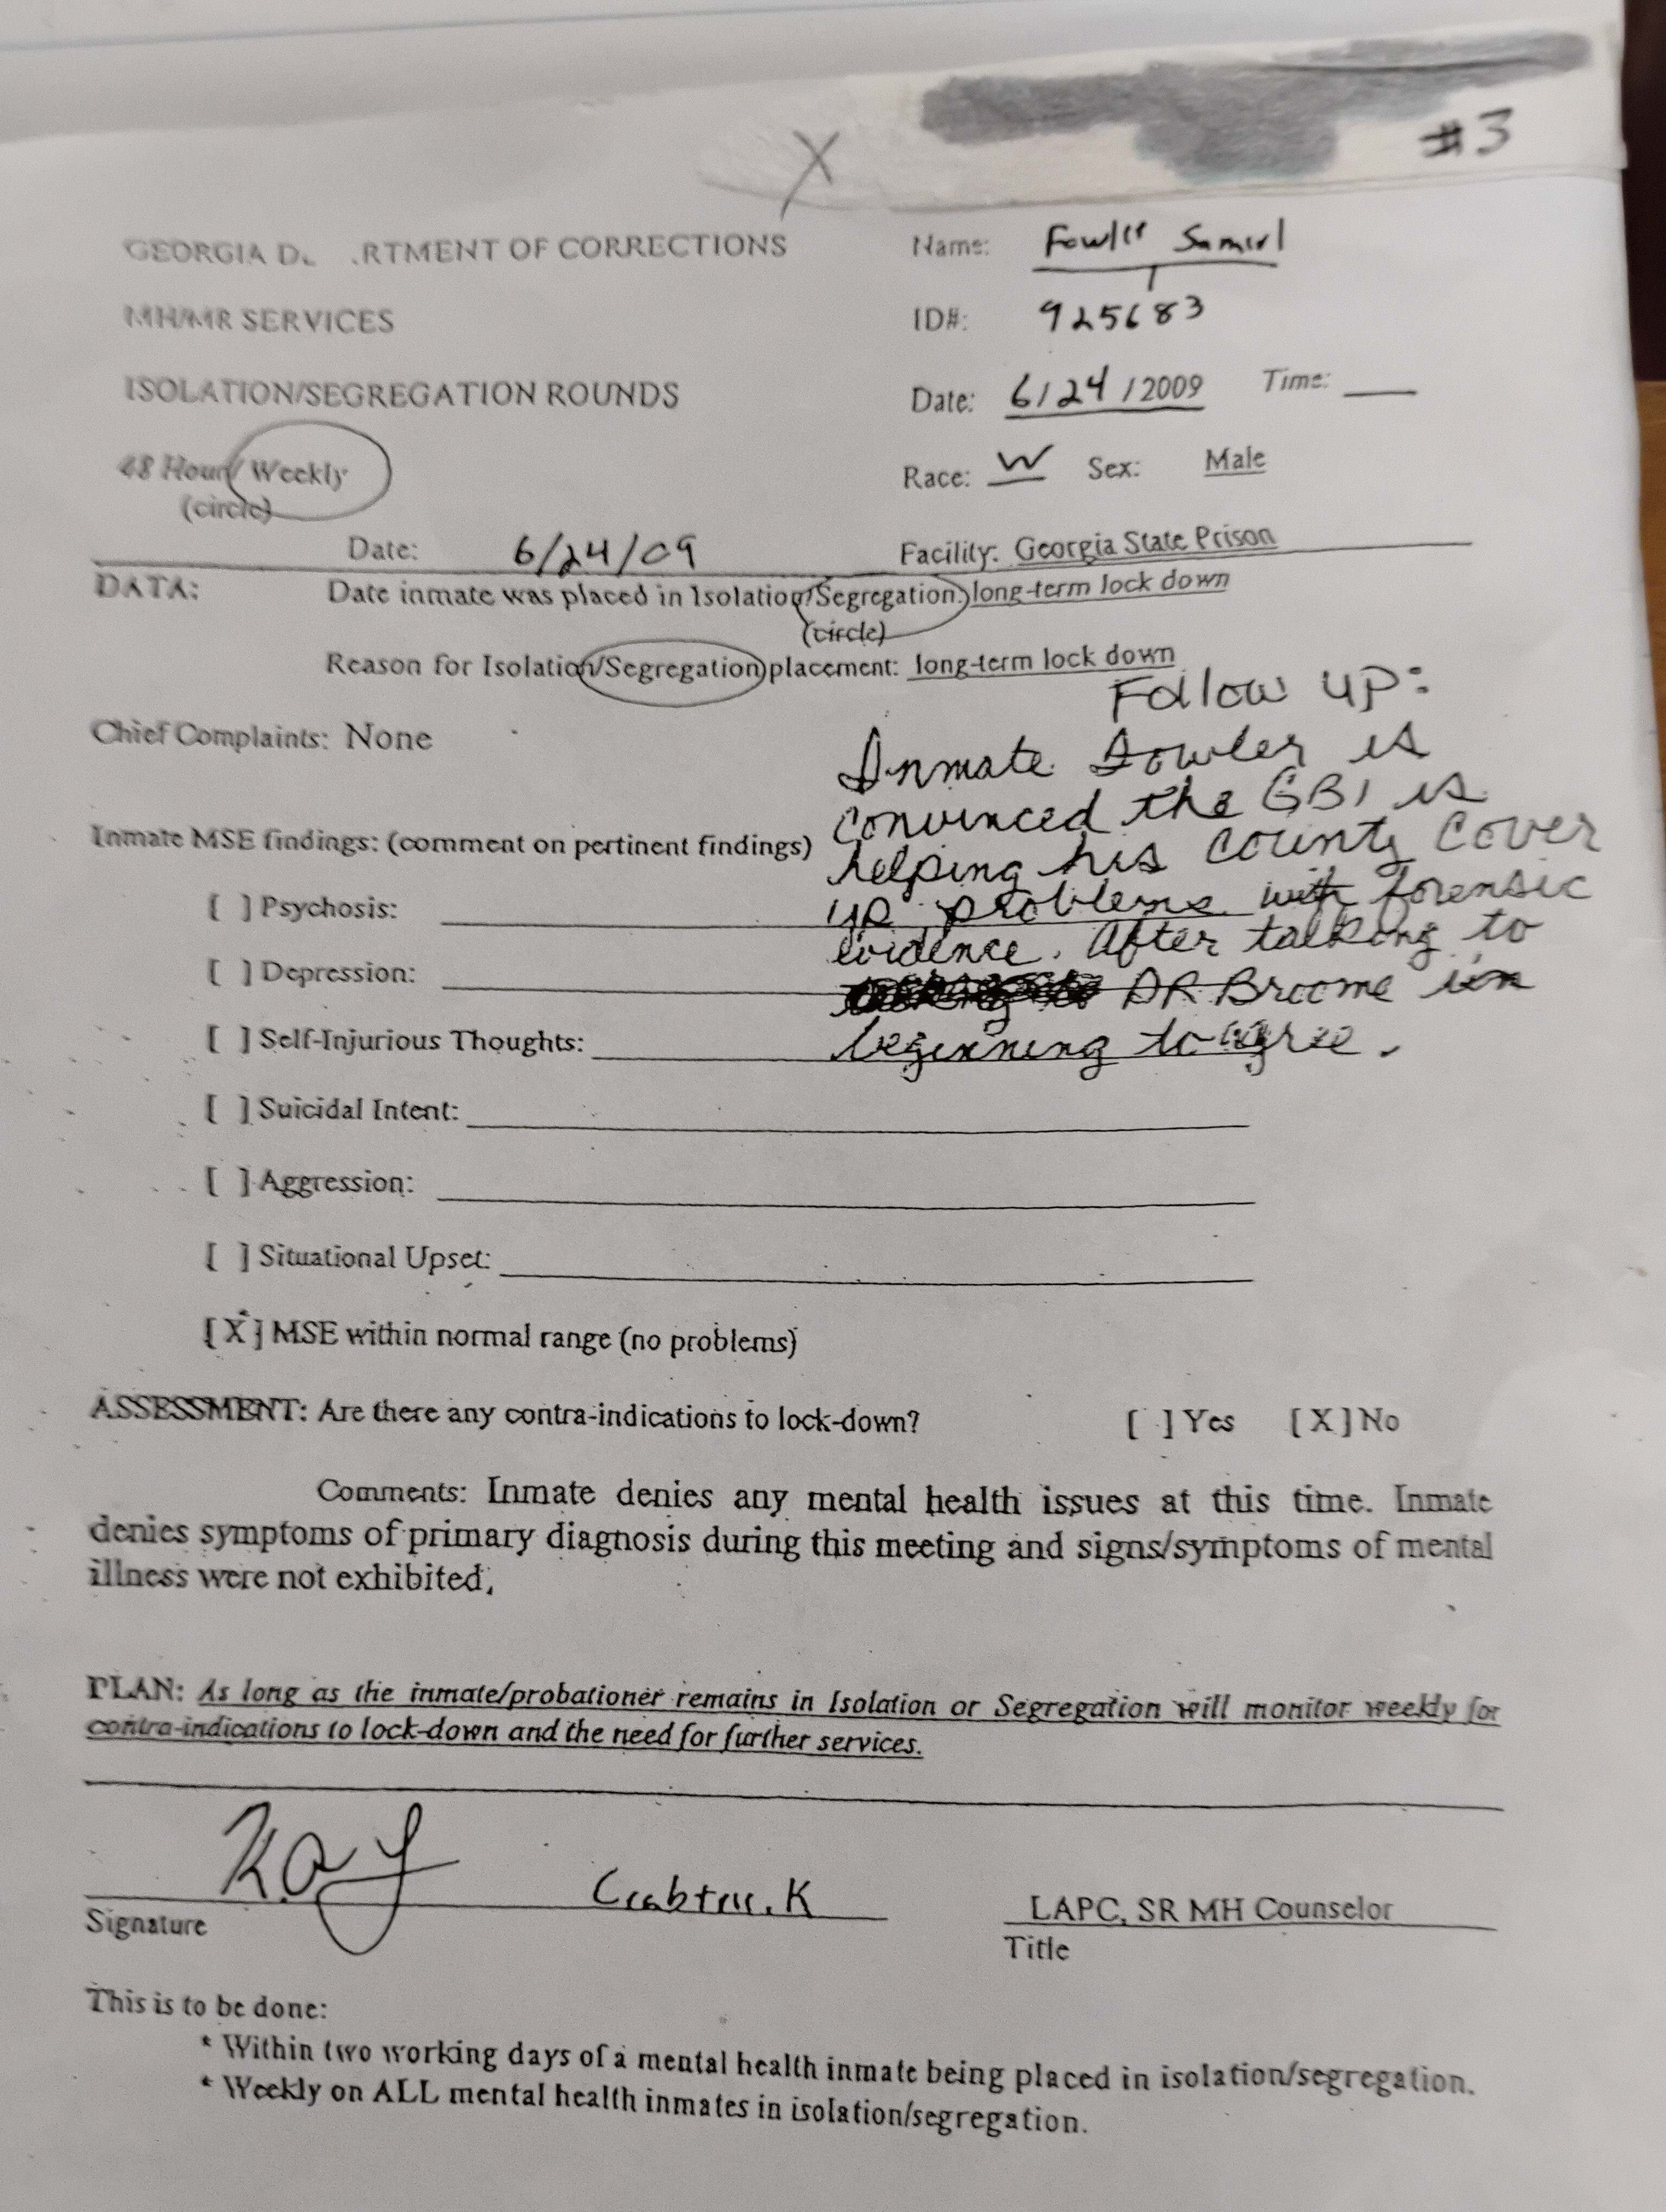 #3
X
GEORGIA D RTMENT OF CORRECTIONS
Name: Fowler Samuel
MH/MR SERVICES
ID#: 925683
ISOLATION/SEGREGATION ROUNDS
Date: 6/24/2009 Time:
48 Hour/Weekly
(circle)
Race: W Sex: Male
Date: 6/24/09
Facility: Georgia State Prison
DATA: Date inmate was placed in Isolation/Segregation: long-term lock down
(circle)
Reason for Isolation/Segregation placement: long-term lock down
Chief Complaints: None
Follow up:
Inmate Fowler is
convinced the GBI is
helping his county cover
up problems with forensic
evidence. After talking to
DR Broome im
beginning to agree.
Inmate MSE findings: (comment on pertinent findings)
[ ] Psychosis:
[ ] Depression:
[ ] Self-Injurious Thoughts:
[ ] Suicidal Intent:
[ ] Aggression:
[ ] Situational Upset:
[X] MSE within normal range (no problems)
ASSESSMENT: Are there any contra-indications to lock-down? [ ] Yes [X] No
Comments: Inmate denies any mental health issues at this time. Inmate
denies symptoms of primary diagnosis during this meeting and signs/symptoms of mental
illness were not exhibited.
PLAN: As long as the inmate/probationer remains in Isolation or Segregation will monitor weekly for
contra-indications to lock-down and the need for further services.
Crabtree, K
LAPC, SR MH Counselor
Signature
Title
This is to be done:
* Within two working days of a mental health inmate being placed in isolation/segregation.
* Weekly on ALL mental health inmates in isolation/segregation.